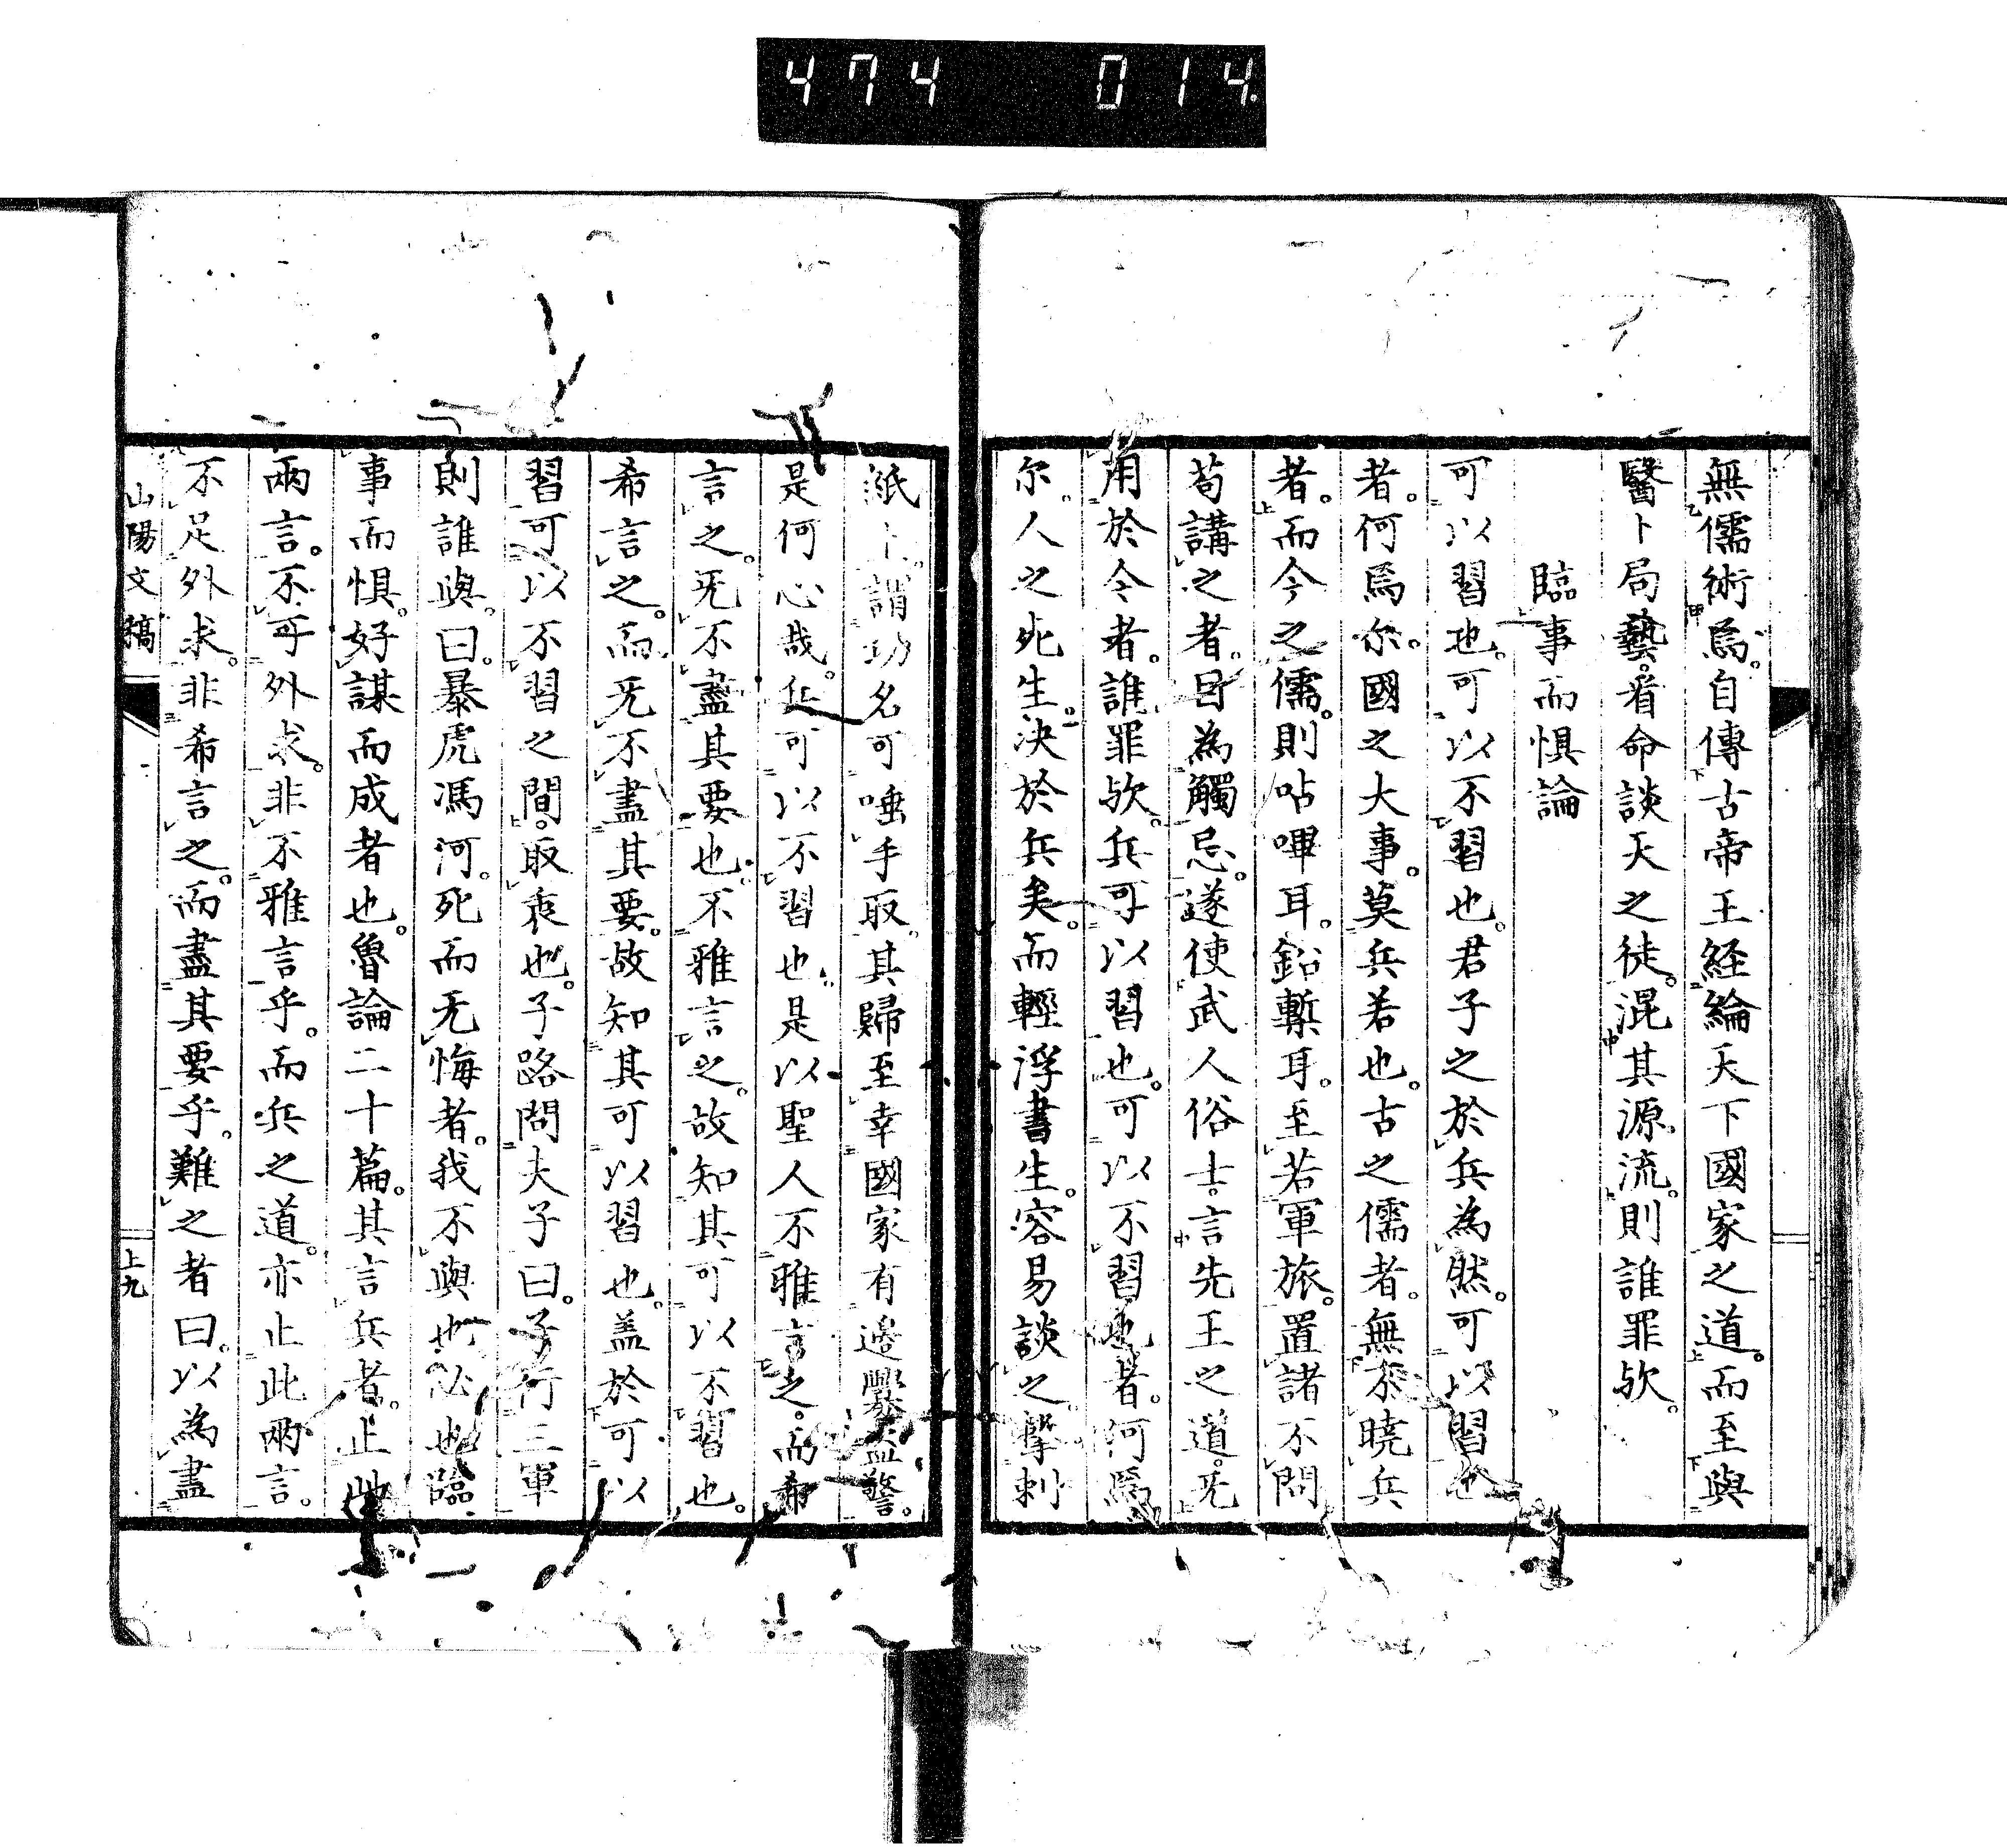 474 014
無儒術焉。自傳古帝王経綸天下國家之道。而至與
醫卜局藝。看命談天之徒。混其源流。則誰罪欤。
臨事而惧論
可以習也。可以不習也。君子之於兵為然。可以習也
者。何焉尓。國之大事。莫兵若也。古之儒者。無不曉兵
者。而今之儒。則呫嗶耳。鉛槧耳。至若軍旅。置諸不問
苟講之者。目為觸忌。遂使武人俗士。言先王之道。旡
用於今者。誰罪欤。兵可以習也。可以不習也者。何焉
尔。人之死生。决於兵矣。而輕浮書生。容易談之。擊刺
紙上。謂功名可唾手取。其歸至幸國家有邊釁盗警。
是何心哉。兵可以不習也。是以聖人不雅言之。而希
言之。旡不盡其要也。不雅言之。故知其可以不習也。
希言之。而旡不盡其要。故知其可以習也。盖於可以
習可以不習之間。取衷也。子路問夫子曰。子行三軍
則誰與。曰。暴虎馮河。死而无悔者。我不與也。必也臨
事而惧。好謀而成者也。魯論二十篇。其言兵者。止此
兩言。不可外求。非不雅言乎。而兵之道。亦止此兩言。
不足外求。非希言之。而盡其要乎。難之者曰。以為盡
山陽文稿
上九